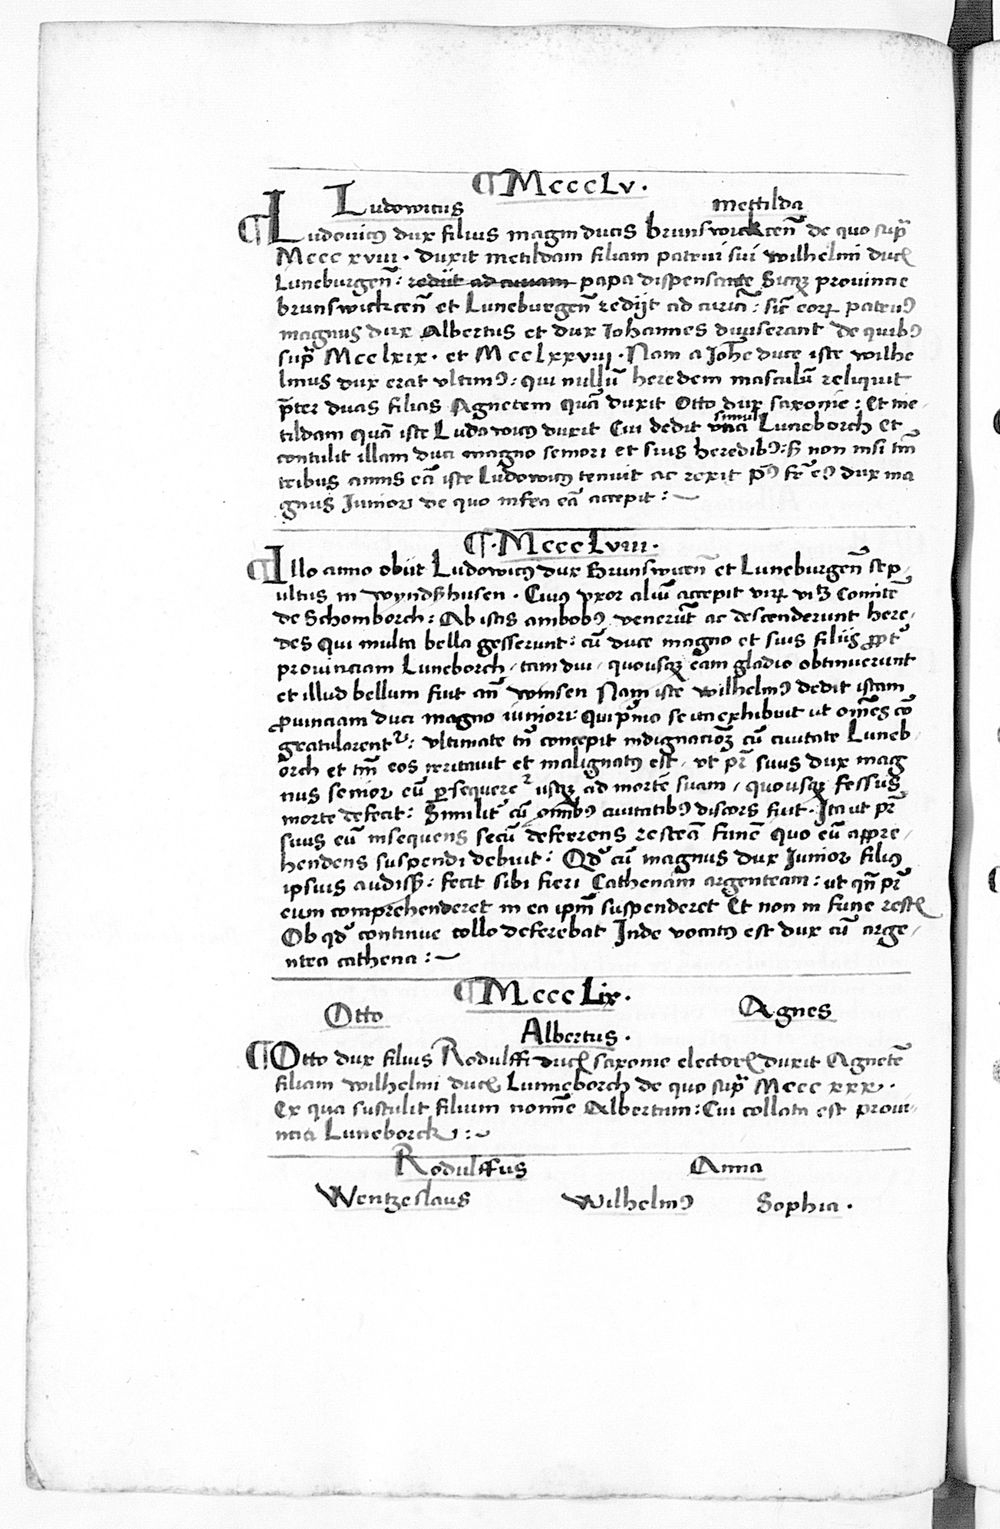 ¶ MccccLv.
Ludowicus mettilda
¶ Ludovicꝰ dux filius magni ducis brunswickceñ de quo supᵃ
Mcccxviii. duxit metildam filiam patrui sui wilhelmi ducꝭ
Luneburgeñ: rediit ad curiam papa dispensante Sicqꝫ provincie
brunswickceñ et Luneburgeñ redijt ad curiã: sic̃ eorꝝ patruꝰ
magnus dux Albertus et dux Johannes diviserant de quibꝰ
supᵃ Mcclxix. et Mcclxxviii. Nam a Joh̃e duce iste wilhe
lmus dux erat ultimꝰ: qui nullũ heredem masculũ reliquit
p̃ter duas filias Agnetem quã duxit Otto dux saxonie: Et me
tildam quã iste Ludowicus duxit Cui dedit simul Luneborch et
contulit illam duci magno seniori et suis heredibꝰ: ß non nisi tm̃
tribus annis eã iste Ludowicꝰ tenuit ac rexit pꝰ fr̃ eꝰ dux ma
gnus Junior de quo infra eã accepit:
¶. MccccLviii.
¶ Illo anno obiit Ludowicꝰ dux Brunswiceñ et Luneburgeñ sep
ultus in wyndßhusen. Cuiꝰ vxor aliũ accepit virꝝ vꝫ Comitẽ
de Schomborch: Ab istis ambobꝰ venerũt ac descenderunt here
des qui multa bella gesserunt: cũ duce magno et suis filiis ꝓpt᷑
provinciam Luneborch, tam diu, quousqꝫ eam gladio obtinuerunt
et illud bellum fuit añ winsen Nam iste wilhelmꝰ dedit istam
ꝓvinciam duci magno iuniori: Qui pⁱmo se ita exhibuit ut om̃es cõ
gratularentᷣ: ultimate tñ concepit indignacioꝫ cũ civitate Luneb
orch et tm̃ eos irritavit et malignatꝰ est, ut pr̃ suus dux mag
nus senior eũ ꝑsequeretᷣ usqꝫ ad mortẽ suam, quousqꝫ fessus
morte defecit: Similitᷣ cũ om̃ibꝰ civitatibꝰ discors fuit. Ita ut pr̃
suus eũ insequens secũ deferens resteã funẽ quo eũ appre
hendens suspendi debuit: Qd᷑ cũ magnus dux Junior filiꝰ
ipsius audiss᷑: fecit sibi fieri Cathenam argenteam: ut qñ pr̃
eum comprehenderet in ea ipm̃ suspenderet Et non in fune restꝭ
Ob qd᷑ continue collo deferebat Inde vocatꝰ est dux cũ arge
ntea cathena:
¶ MccccLix.
Otto Agnes
Albertus.
¶ Otto dux filius Rodulffi ducꝭ saxonie electorꝭ duxit Agnetẽ
filiam wilhelmi ducꝭ Lunneborch de quo supᵃ Mcccxxx.
Ex qua sustulit filium nom̃e Albertum: Cui collata est provi
ncia Luneborck:
Rodulffus Anna
Wentzeslaus Wilhelmꝰ Sophia.